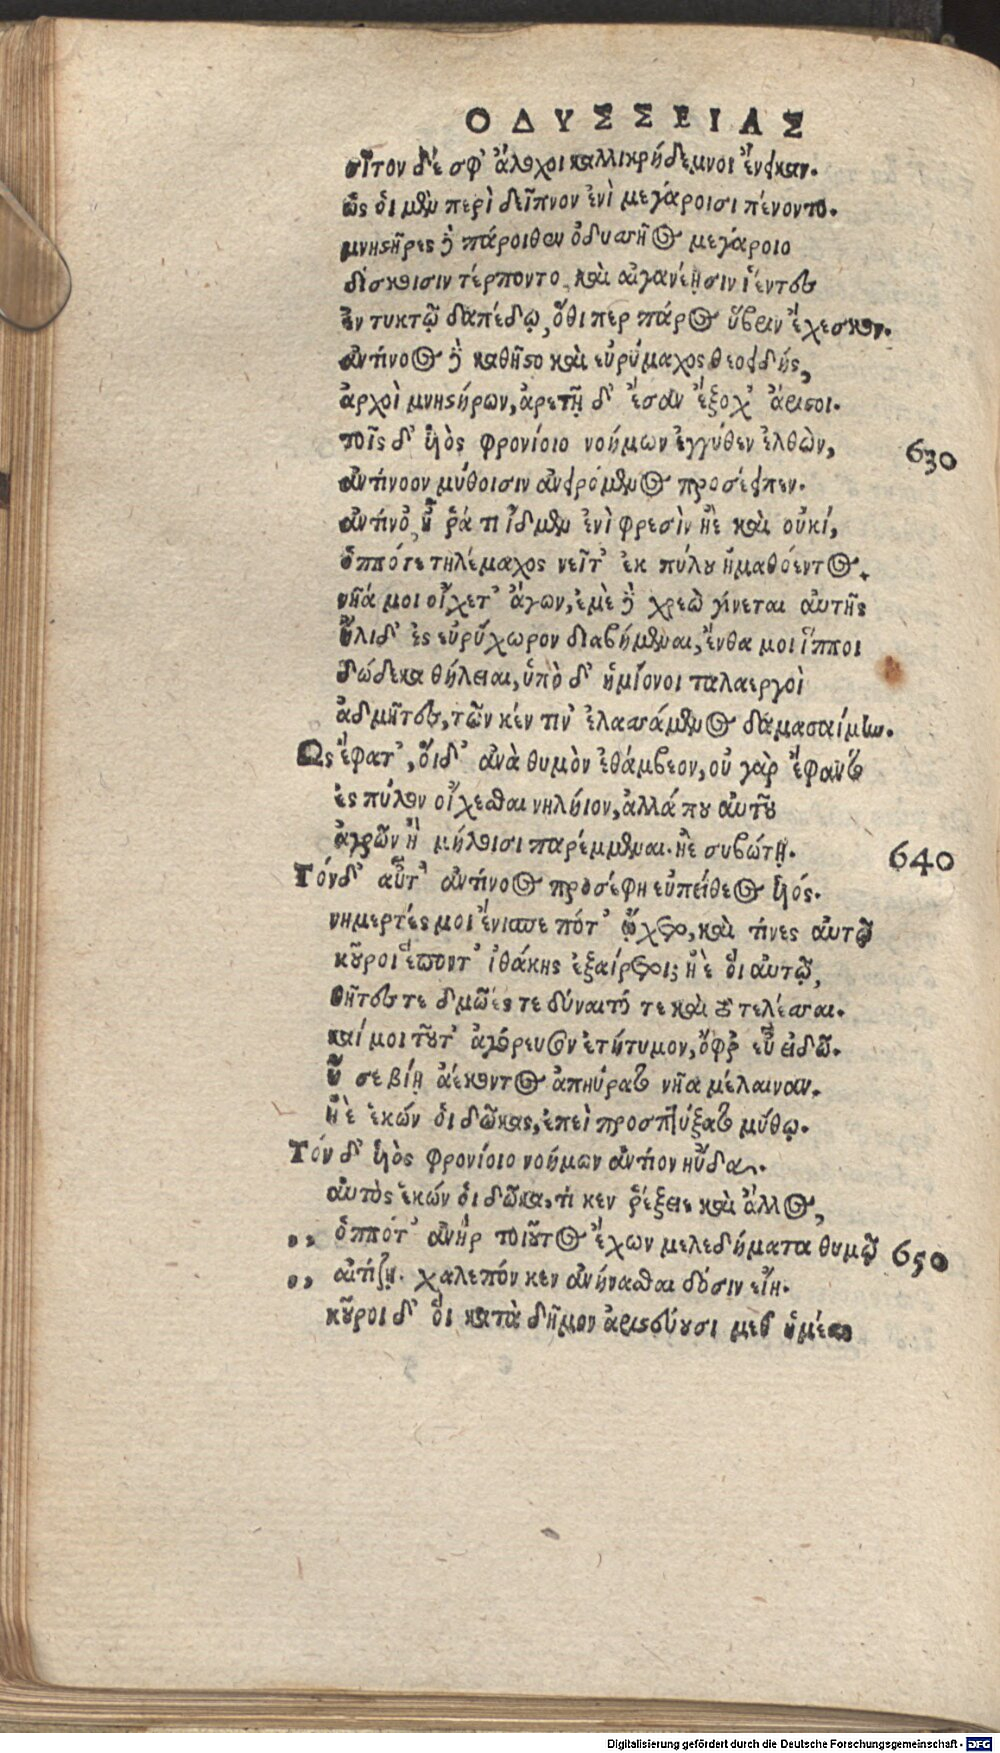 ΟΔΥΣΣΕΙΑΣ
σῖτον δέ σφ' ἄλοχοι καλλικρήδεμνοι ἔνεικαν.
ὣς ὁι μὲν περὶ δεῖπνον ἐνὶ μεγάροισι πένοντο.
μνηστῆρες δὲ πάροιθεν ὀδυσσῆος μεγάροιο
δίσκοισιν τέρποντο, καὶ αἰγανέῃσιν ἱέντες
ἐν τυκτῷ δαπέδῳ, ὅθι περ πάρος ὕβριν ἔχεσκον.
ἀντίνοος δὲ καθῆστο καὶ εὐρύμαχος θεοειδής,
ἀρχοὶ μνηστήρων, ἀρετῇ δ' ἔσαν ἔξοχ' ἄριστοι.
τοῖς δ' ὑιὸς φρονίοιο νοήμων ἐγγύθεν ἐλθὼν, 630
ἀντίνοον μύθοισιν ἀνειρόμενος προσέειπεν.
ἀντίνο', ἦ ῥά τι ἴδμεν ἐνὶ φρεσὶν ἠὲ καὶ οὐκί,
ὁππότε τηλέμαχος νεῖτ' ἐκ πύλου ἠμαθόεντος.
νῆά μοι οἴχετ' ἄγων, ἐμὲ δὲ χρεὼ γίνεται αὐτῆς
ἤλιδ' ἐς εὐρύχωρον διαβήμεναι, ἔνθα μοι ἵπποι
δώδεκα θήλειαι, ὑπὸ δ' ἡμίονοι ταλαεργοὶ
ἀδμῆτες, τῶν κέν τιν' ἐλασσάμενος δαμασαίμην.
Ὣς ἔφατ', ὅιδ' ἀνὰ θυμὸν ἐθάμβεον, οὐ γὰρ ἔφαντο
ἐς πύλον οἴχεσθαι νηλήιον, ἀλλά που αὐτοῦ
ἀγρῶν ἢ μήλοισι παρέμμεναι. ἠὲ συβώτῃ. 640
Τόνδ' αὖτ' ἀντίνοος προσέφη εὐπείθεος ὑιός.
νημερτές μοι ἔνισπε πότ' ᾤχετο, καὶ τίνες αὐτῷ
κοῦροι ἕποντ' ἰθάκης ἐξαίρετοι; ἢ ἑ ὅι αὐτῷ,
θῆτές τε δμῶές τε δύναιτό τε καὶ τὸ τελέσσαι.
καί μοι τοῦτ' ἀγόρευσον ἐτήτυμον, ὄφρ' εὖ εἰδῶ.
ἦ σε βίῃ ἀέκοντος ἀπηύρατο νῆα μέλαιναν.
ἦὲ ἑκών ὁι δῶκας, ἐπεὶ προσπτύξατο μύθῳ.
Τόν δ' ὑιὸς φρονίοιο νοήμων ἀντίον ηὔδα.
αὐτὸς ἑκών ὁι δῶκα, τί κεν ῥέξειε καὶ ἄλλος,
,, ὁππότ' ἀνὴρ τοιοῦτος ἔχων μελεδήματα θυμῷ 650
,, αἰτίζῃ. χαλεπόν κεν ἀνήνασθαι δόσιν εἴη.
κοῦροι δ' ὅι κατὰ δῆμον ἀριστεύουσι μεθ' ἡμέας
Digitalisierung gefördert durch die Deutsche Forschungsgemeinschaft - DFG